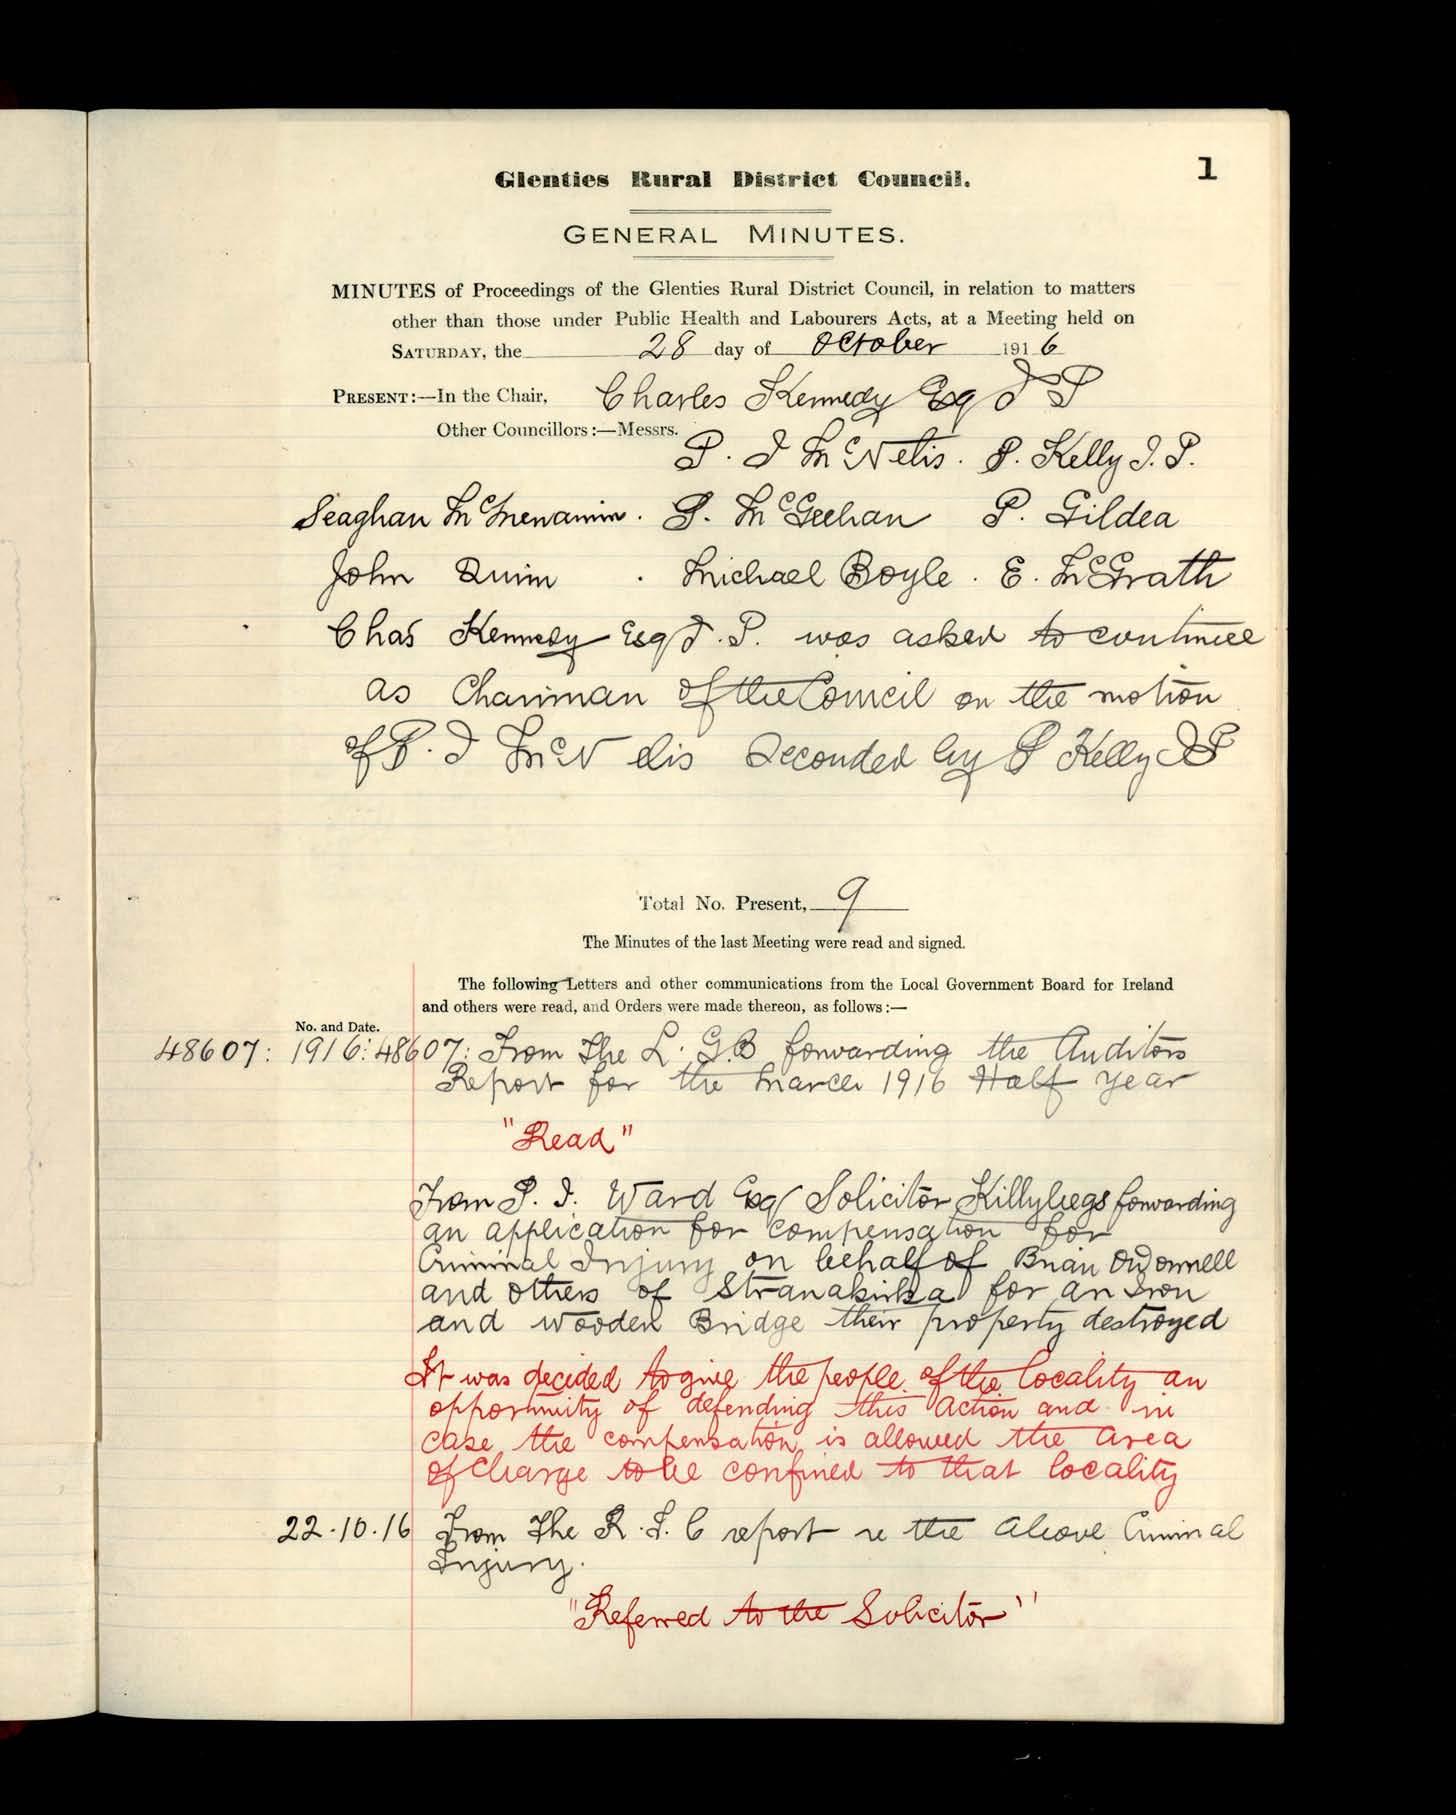 1
Glenties Rural District Council.
GENERAL MINUTES.
MINUTES of Proceedings of the Glenties Rural District Council, in relation to matters
other than those under Public Health and Labourers Acts, at a Meeting held on
SATURDAY, the 28 day of October 1916
PRESENT:—In the Chair, Charles Kennedy Esq J P
Other Councillors:—Messrs.
P. J McNelis. P. Kelly J. P.
Seaghan McMenamin. P. McGeehan P. Gildea
John Quinn . Michael Boyle. E. McGrath
Chas Kennedy Esq J. P. was asked to continue
as Chairman of the Council on the motion
of P. J McNelis Seconded by P Kelly JP
Total No. Present, 9
The Minutes of the last Meeting were read and signed.
The following Letters and other communications from the Local Government Board for Ireland
and others were read, and Orders were made thereon, as follows:—
No. and Date.
48607: 1916: 48607: From The L. G.B forwarding the Auditors
Report for the March 1916 Half year
"Read"
From P. J. Ward Esq Solicitor Killybegs forwarding
an application for compensation for
Criminal Injury on behalf of Brian O'Donnell
and others of for an Iron
and wooden Bridge their property destroyed
It was decided to give the people of the locality an
opportunity of defending this action and in
case the compensation is allowed the area
of charge to be confined to that locality
22.10.16 From The R.I.C report re the above Criminal
Injury.
"Referred to the Solicitor"